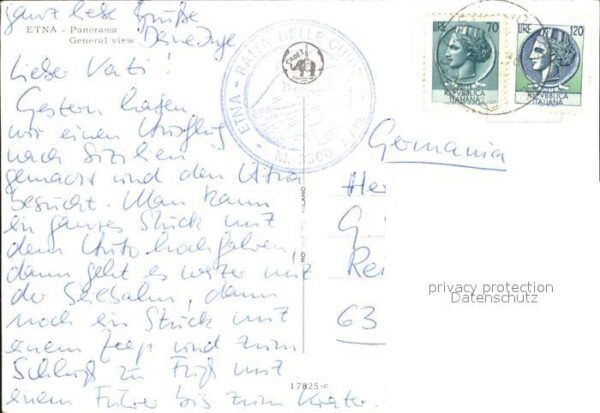 ganz liebe Grüße
Deine Inge
ETNA - Panorama
General view
Lieber Vati!
Gestern haben
wir einen Ausflug
nach Sizilien
gemacht und den Ätna
besucht. Man kann
ein ganzes Stück mit
dem Auto hochfahren,
dann geht es weiter mit
der Seilbahn, dann
noch ein Stück mit
einem Jeep und zum
Schluß zu Fuß mit
einem Führer bis zum Krater.
ETNA - BAITA DELLE GUIDE
M. 3000
LIRE 70
REPUBBLICA
ITALIANA
LIRE 120
REPUBBLICA
ITALIANA
Germania
He
G
Re
63
MILANO
17825-c
privacy protection
Datenschutz